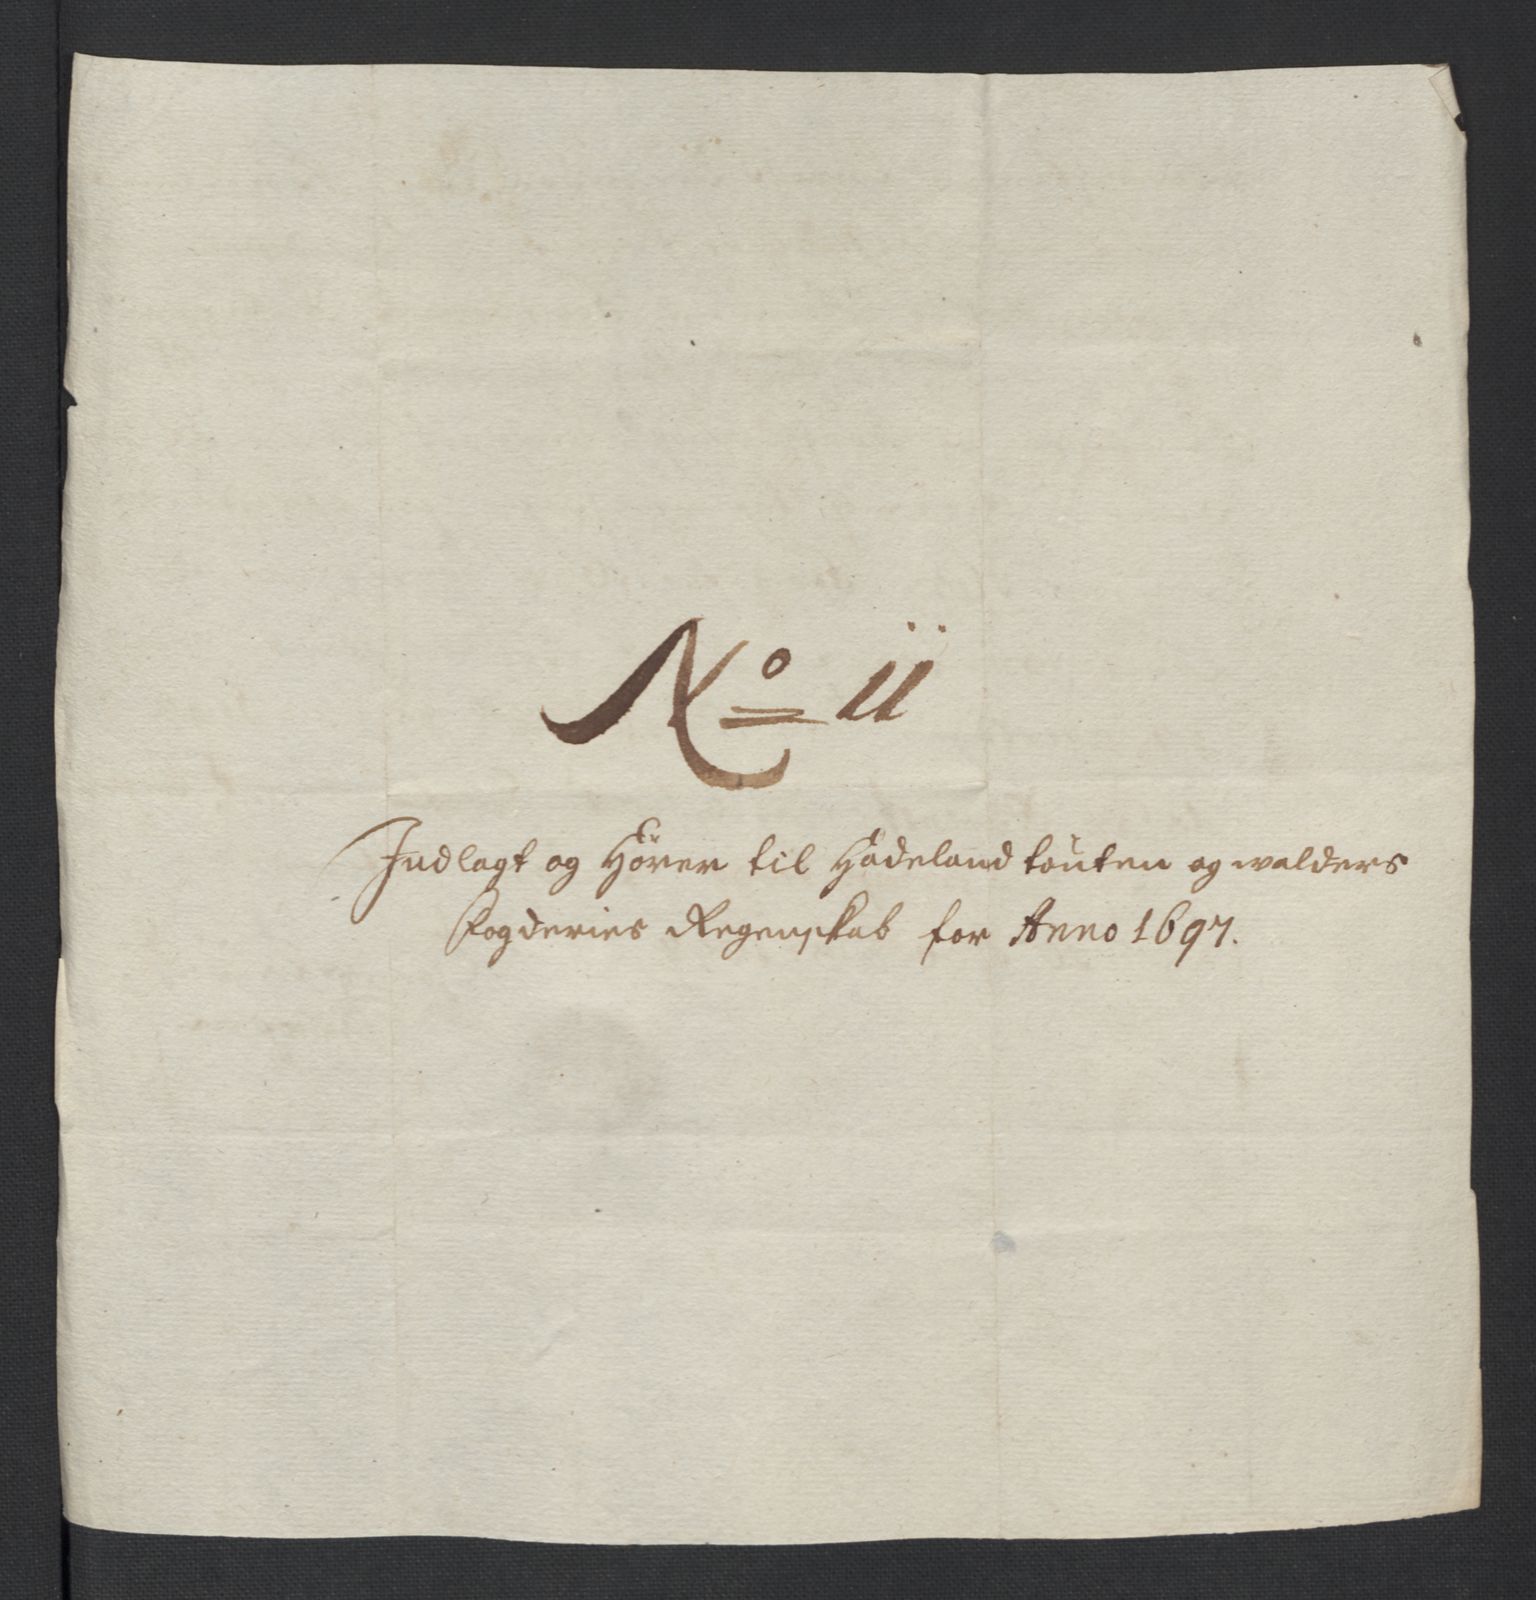 No ii
Indlagt og Hörer til Hadeland toŭten og walders
fogderies Regenskab for Anno 1697.